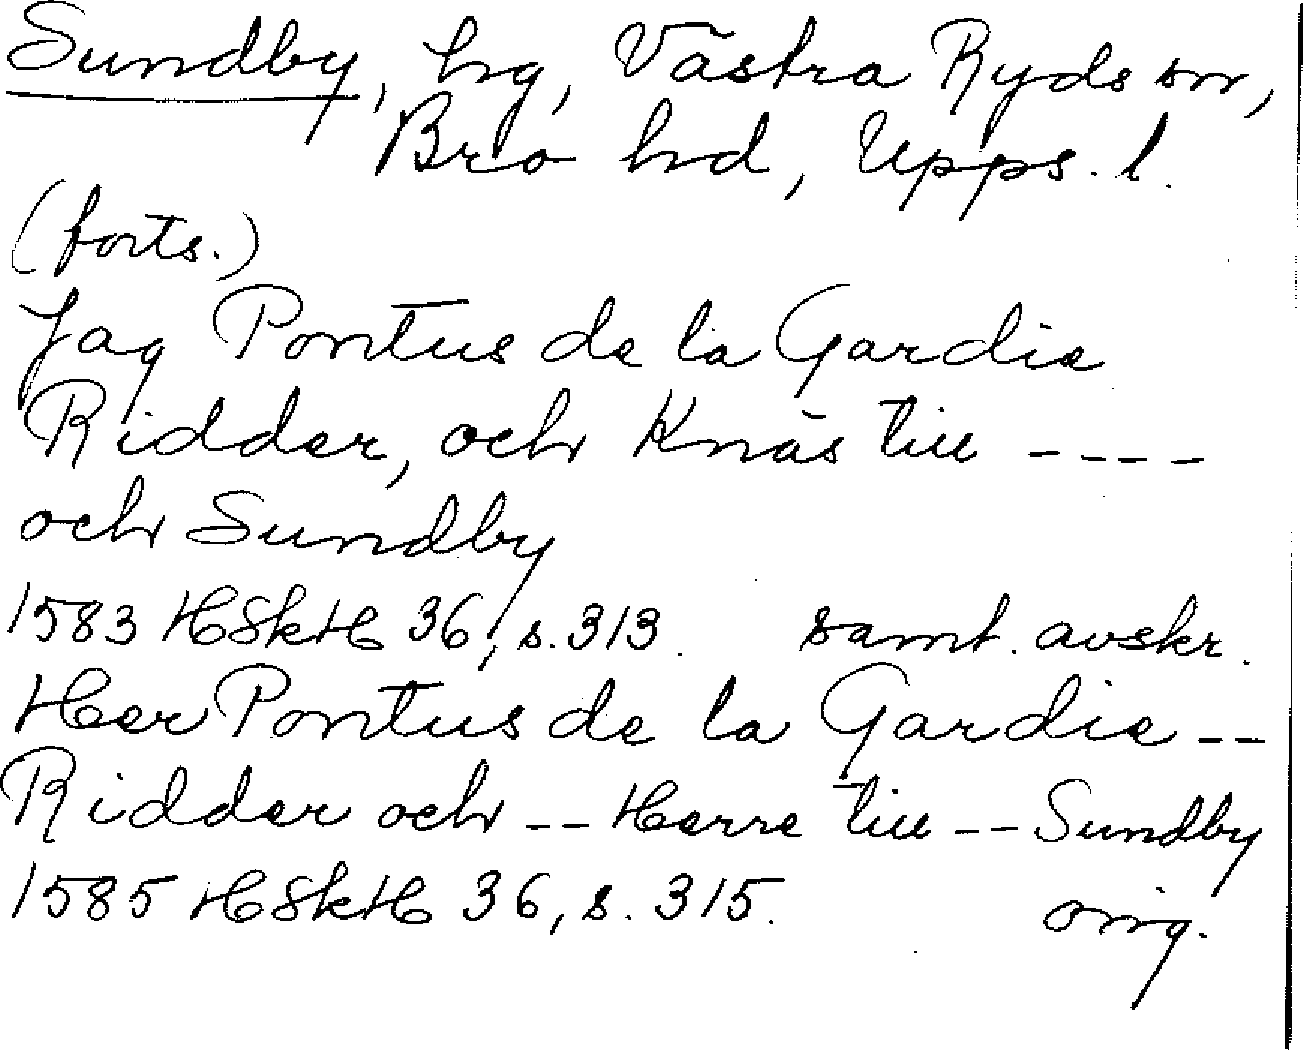 Sundby, hg, Västra Ryds sn,
Bro hd, Upps. l.
(forts.)
Jag Pontus de la Gardie
Ridder, och Knäs till ----
och Sundby
1583 HSkH 36, s. 313. samt. avskr.
Her Pontus de la Gardie --
Ridder och -- Herre till -- Sundby
1585 HSkH 36, s. 315. orig.